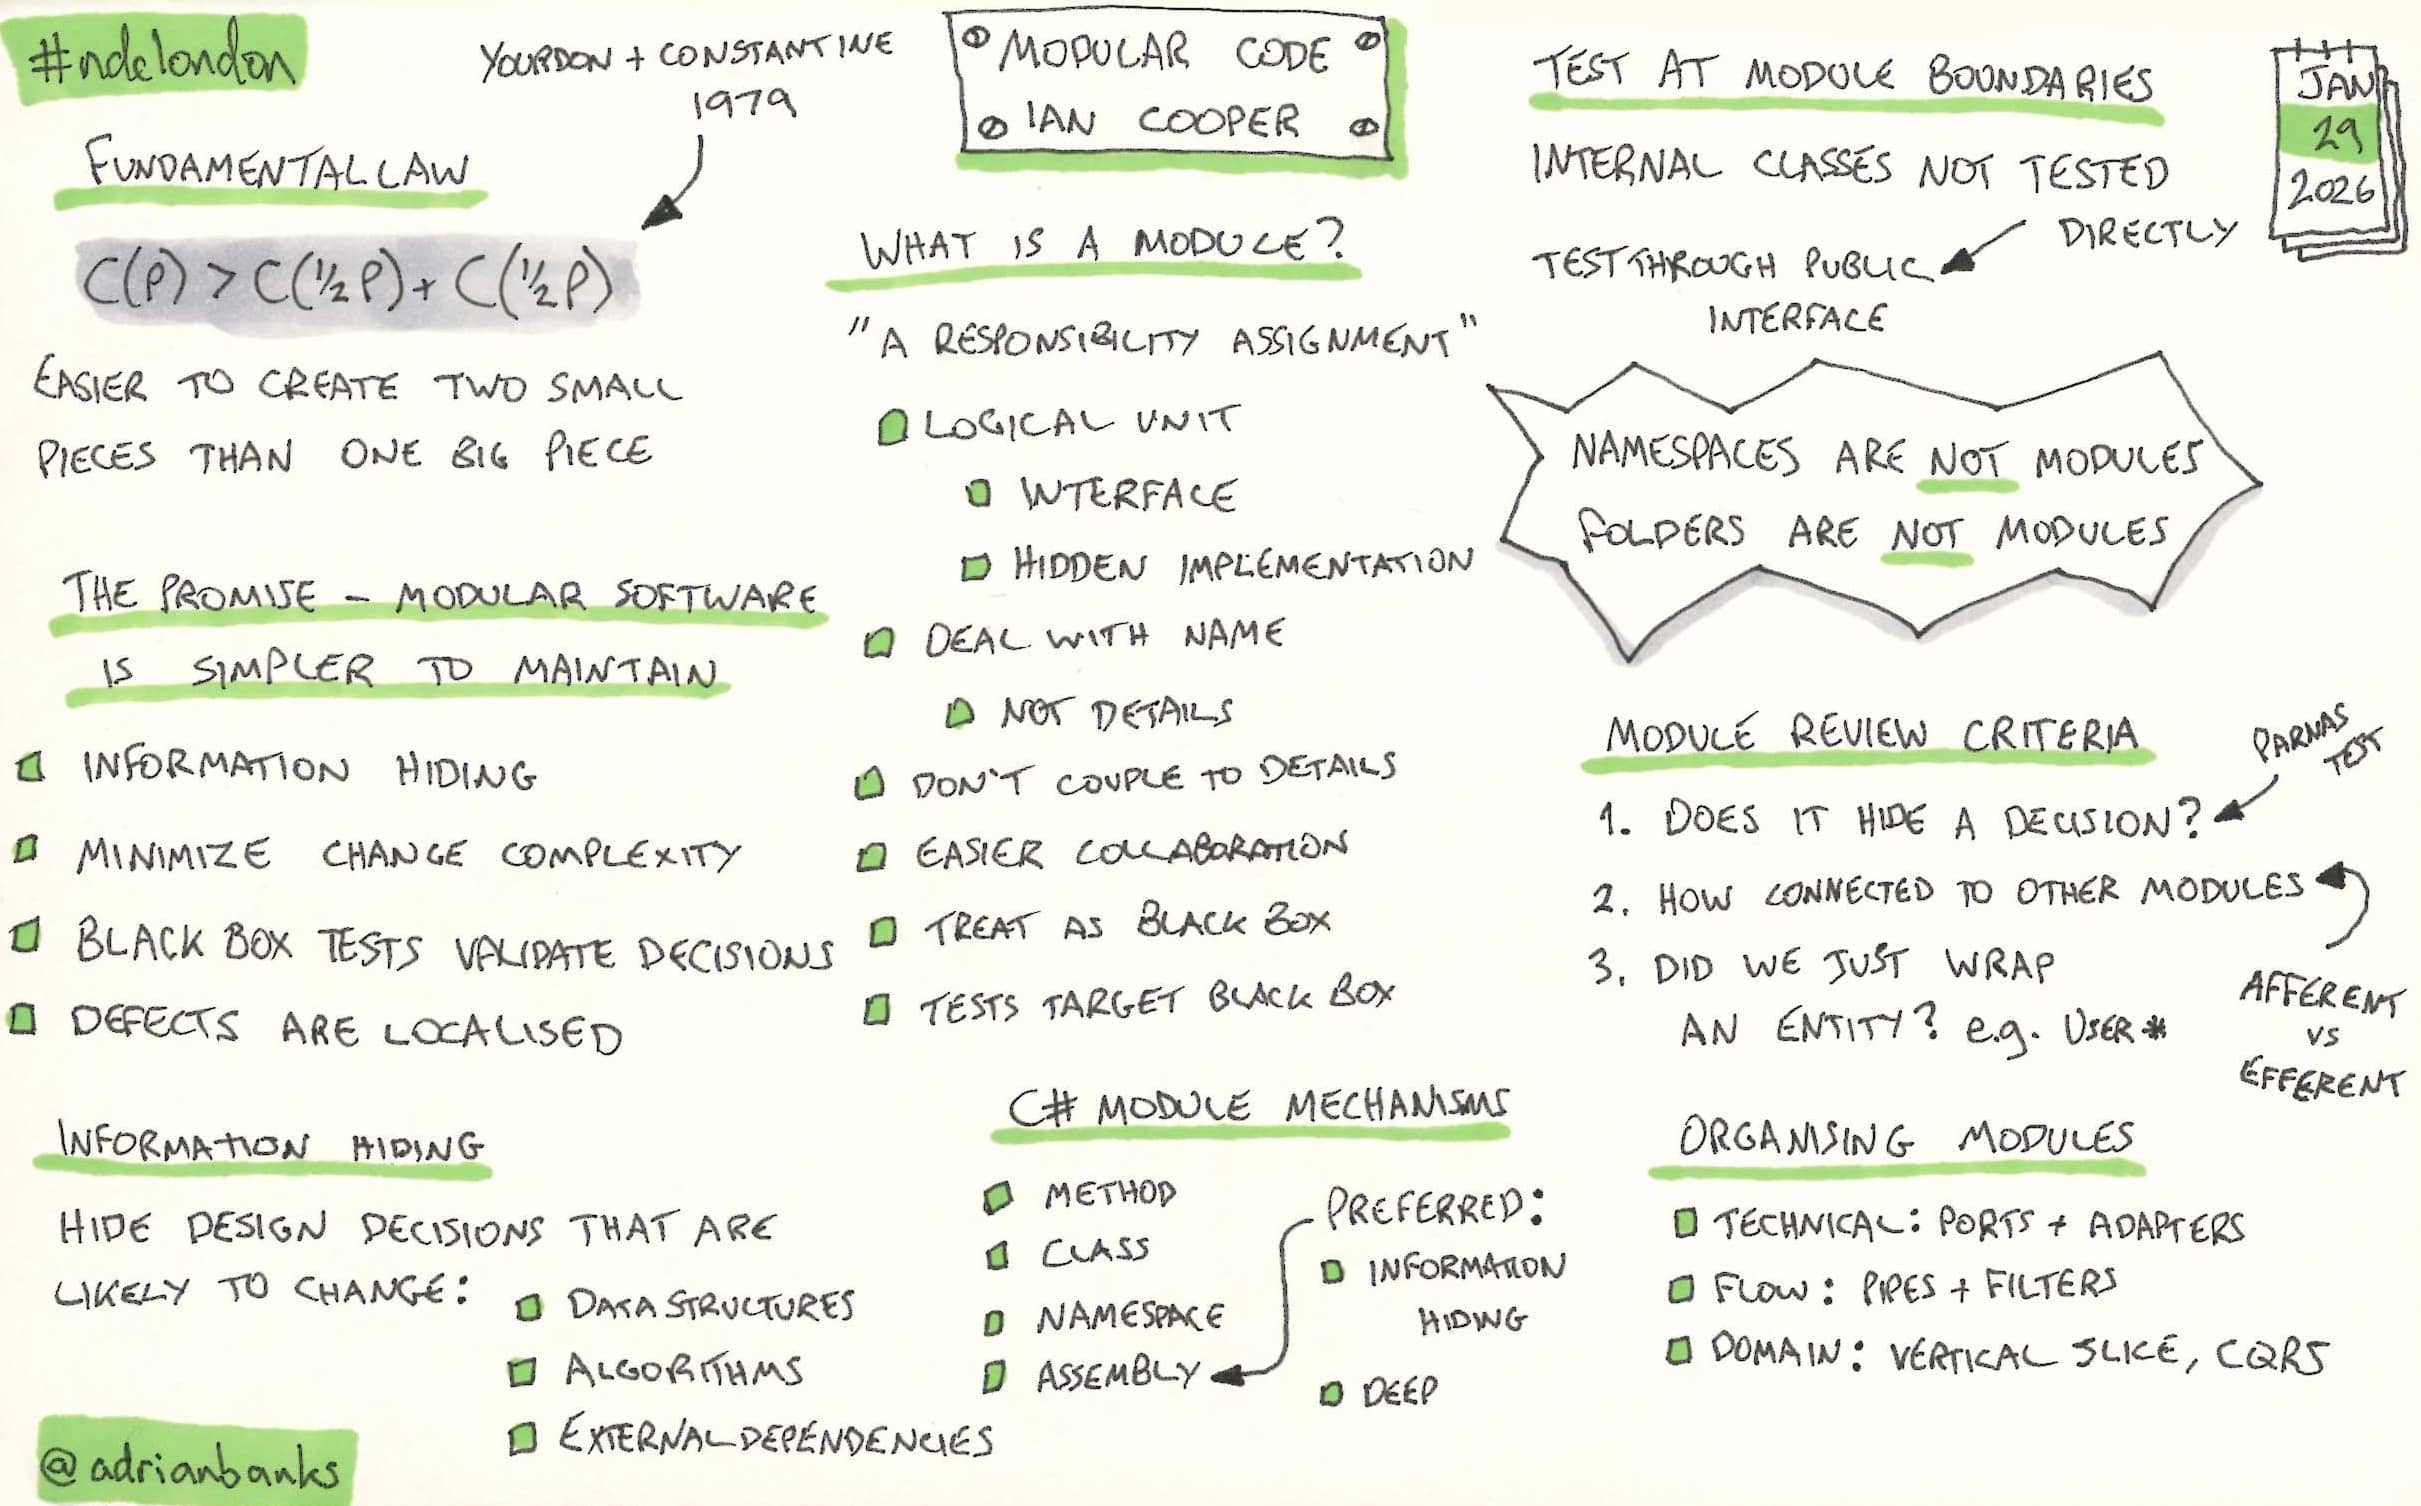 #ndclondon
YOURDON + CONSTANTINE
1979
FUNDAMENTAL LAW
C(P) > C(½P) + C(½P)
EASIER TO CREATE TWO SMALL
PIECES THAN ONE BIG PIECE
THE PROMISE - MODULAR SOFTWARE
IS SIMPLER TO MAINTAIN
INFORMATION HIDING
MINIMIZE CHANGE COMPLEXITY
BLACK BOX TESTS VALIDATE DECISIONS
DEFECTS ARE LOCALISED
INFORMATION HIDING
HIDE DESIGN DECISIONS THAT ARE
LIKELY TO CHANGE:
DATA STRUCTURES
ALGORITHMS
EXTERNAL DEPENDENCIES
@adrianbanks
MODULAR CODE
IAN COOPER
WHAT IS A MODULE?
"A RESPONSIBILITY ASSIGNMENT"
LOGICAL UNIT
INTERFACE
HIDDEN IMPLEMENTATION
DEAL WITH NAME
NOT DETAILS
DON'T COUPLE TO DETAILS
EASIER COLLABORATION
TREAT AS BLACK BOX
TESTS TARGET BLACK BOX
C# MODULE MECHANISMS
METHOD
CLASS
NAMESPACE
ASSEMBLY
PREFERRED:
INFORMATION
HIDING
DEEP
TEST AT MODULE BOUNDARIES
INTERNAL CLASSES NOT TESTED
DIRECTLY
TEST THROUGH PUBLIC
INTERFACE
JAN
29
2026
NAMESPACES ARE NOT MODULES
FOLDERS ARE NOT MODULES
MODULE REVIEW CRITERIA
PARNAS
TEST
1. DOES IT HIDE A DECISION?
2. HOW CONNECTED TO OTHER MODULES
3. DID WE JUST WRAP
AN ENTITY? e.g. USER*
AFFERENT
VS
EFFERENT
ORGANISING MODULES
TECHNICAL: PORTS + ADAPTERS
FLOW: PIPES + FILTERS
DOMAIN: VERTICAL SLICE, CQRS